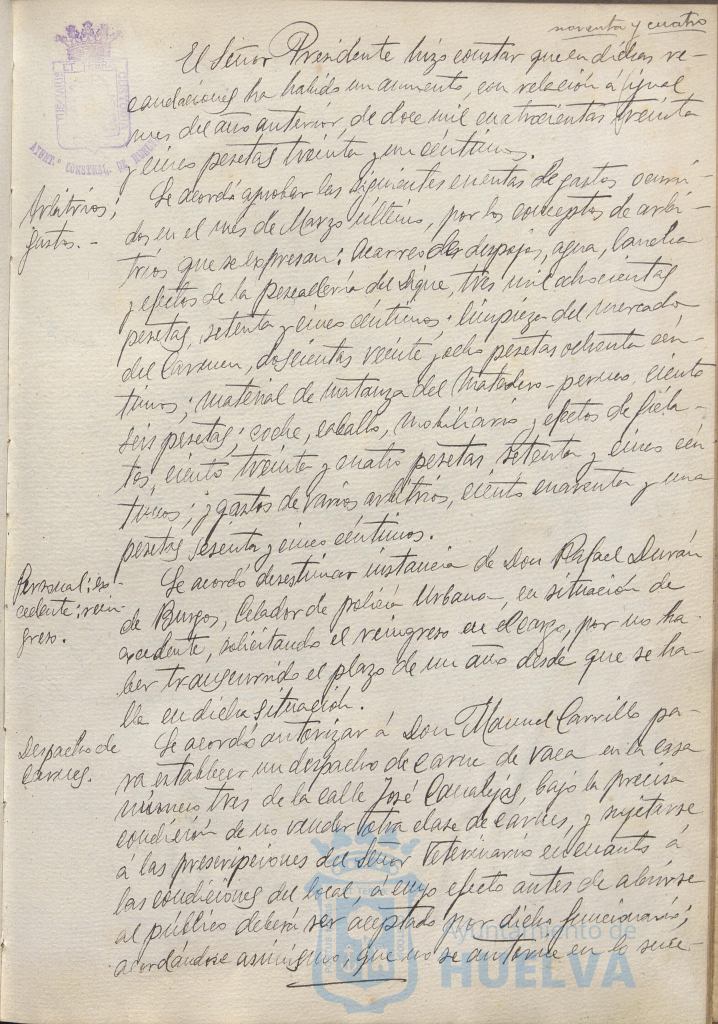 noventa y cuatro
El Señor Presidente hizo constar que en dichas re-
caudaciones ha habido un aumento, con relación á igual
mes del año anterior, de doce mil cuatrocientas treinta
y cinco pesetas treinta y un céntimos.
Arbitrios;
gastos.-
Se acordó aprobar las siguientes cuentas de gastos ocurri-
dos en el mes de Marzo último, por los conceptos de arbi-
trios que se expresan: Acarreo de despojos, agua, lancha
y efectos de la Pescadería del Dique, tres mil ochocientas
pesetas, setenta y cinco céntimos; limpieza del mercado
del Carmen, doscientas veinte y ocho pesetas ochenta cén-
timos; material de matanza del Matadero-porcuno, ciento
seis pesetas; coche, caballo, mobiliario y efectos de fiela-
tos, ciento treinta y cuatro pesetas setenta y cinco cén-
timos; y gastos de varios arbitrios, ciento cuarenta y una
pesetas sesenta y cinco céntimos.
Personal; es-
cedente; rein-
greso.
Se acordó desestimar instancia de Don Rafael Durán
de Burgos, Celador de policía Urbana, en situación de
excedente, solicitando el reingreso en el cargo, por no ha-
ber transcurrido el plazo de un año desde que se ha-
lla en dicha situación.
Despacho de
Carnes.
Se acordó autorizar á Don Manuel Carrillo pa-
ra establecer un despacho de carne de vaca en la casa
número tres de la calle José Canalejas, bajo la precisa
condición de no vender otra clase de carnes, y sujetarse
á las prescripciones del Señor Veterinario en cuanto á
las condiciones del local, á cuyo efecto antes de abrirse
al público deberá ser aceptado por dicho funcionario;
acordándose asimismo, que no se autorice en lo suce-
Ayuntamiento de
HUELVA